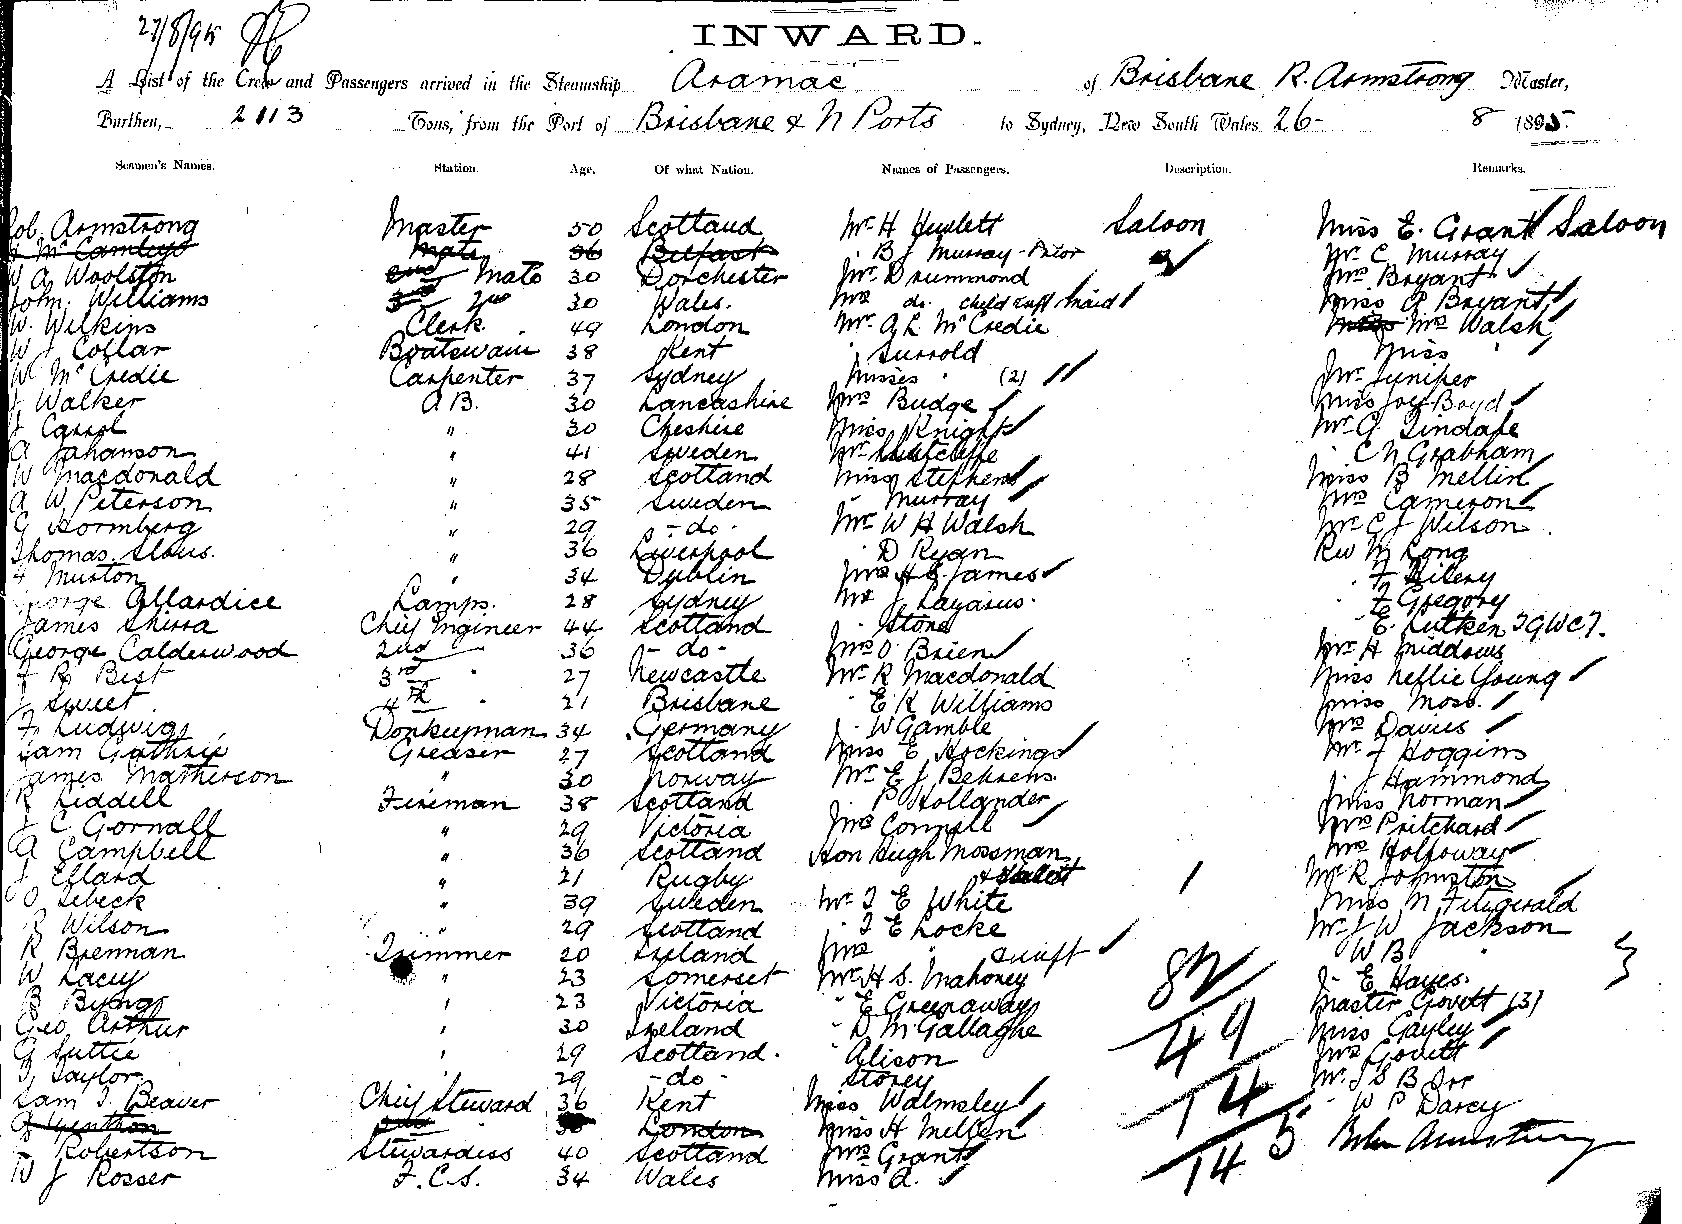 27/8/95
INWARD.
A List of the Crew and Passengers arrived in the Steamship Aramac of Brisbane R. Armstrong Master,
Burthen, 2113 Tons, from the Port of Brisbane & N Ports to Sydney, New South Wales 26- 8 1895.
Seamen's Names. Station. Age. Of what Nation. Names of Passengers. Description. Remarks.
Rob. Armstrong Master 50 Scotland Mr H Hewlett Saloon Miss E. Grant Saloon
Mate 36 Belfast B J Murray-Prior Mr C Murray
W A Woolston 2nd Mate 30 Dorchester Mr. Drummond Mrs Bryant
John. Williams 3rd 2nd 30 Wales. Mrs do. child & Maid Miss A Bryant.
W. Wilkins Clerk. 49 London Mr. A L McCredie Miss Mrs Walsh
W J Collar Boatswain 38 Kent Miss "
W McCredie Carpenter 37 Sydney Misses " (2) Mr Juniper
J Walker A B. 30 Lancashire Mrs Budge Miss Boyd
J Carrol " 30 Cheshire Miss Knight Mr G. Tindale
A Johanson " 41 Sweden Mr Sutcliffe C N Grabham
W Macdonald " 28 Scotland Miss Stephens Miss B Mellin
A W Peterson " 35 Sweden " Murray Mrs Cameron
G Stormberg " 29 - do - Mr W H Walsh Mr C J Wilson
Thomas " 36 Liverpool " D Ryan Rev M Long
Murton " 34 Dublin Mrs H G James " F Hilery
George Allardice Lamps. 28 Sydney Mr J Lazarus. " F Gregory
James Shirra Chief Engineer 44 Scotland " Stone " E. Lutken IGWCT.
George Calderwood 2nd " 36 - do - Mrs O'Brien Mr H Middows
F R Best 3rd " 27 Newcastle Mr R Macdonald Miss Nellie Young
J Sweet 4th " 21 Brisbane " E R Williams Miss Moss.
F. Ludwig Donkeyman 34 Germany " W Gamble Mrs Davies
Sam Guthrie Greaser 27 Scotland Miss E Hockings Mr J Hoggins
James Matherson " 30 Norway Mr E J Behrens " J Hammond
R Liddell Fireman 38 Scotland " P Hollander Miss Norman
J C Gornall " 29 Victoria Mrs Connell Mrs Pritchard
A Campbell " 36 Scotland Hon Hugh Mossman Mrs Holloway
J Ellard " 21 Rugby & Valet 1 Mr R Johnston
O Sebeck " 39 Sweden Mr T E White Miss M Fitzgerald
R Wilson " 29 Scotland " T E Locke Mr J W Jackson
R Brennan Trimmer 20 Ireland Mrs " W B "
W Lacey " 23 Somerset Mr H S. Mahoney " E Hayes.
B Byng " 23 Victoria " E Greenaway Master Govett (3)
Geo Arthur " 30 Ireland " D McGallaghe Miss Cayley
G Suttie " 29 Scotland. " Alison Mrs Govett
J. Taylor " 29 - do - " Storey Mr. J S B Orr
Sam J. Beaver Chief Steward 36 Kent Miss Walmsley " W P Darcy
London Miss H Mellen
Robertson Stewardess 40 Scotland Mrs Grant
W J Rosser F.C.S. 34 Wales Miss A.
82
49
14
145